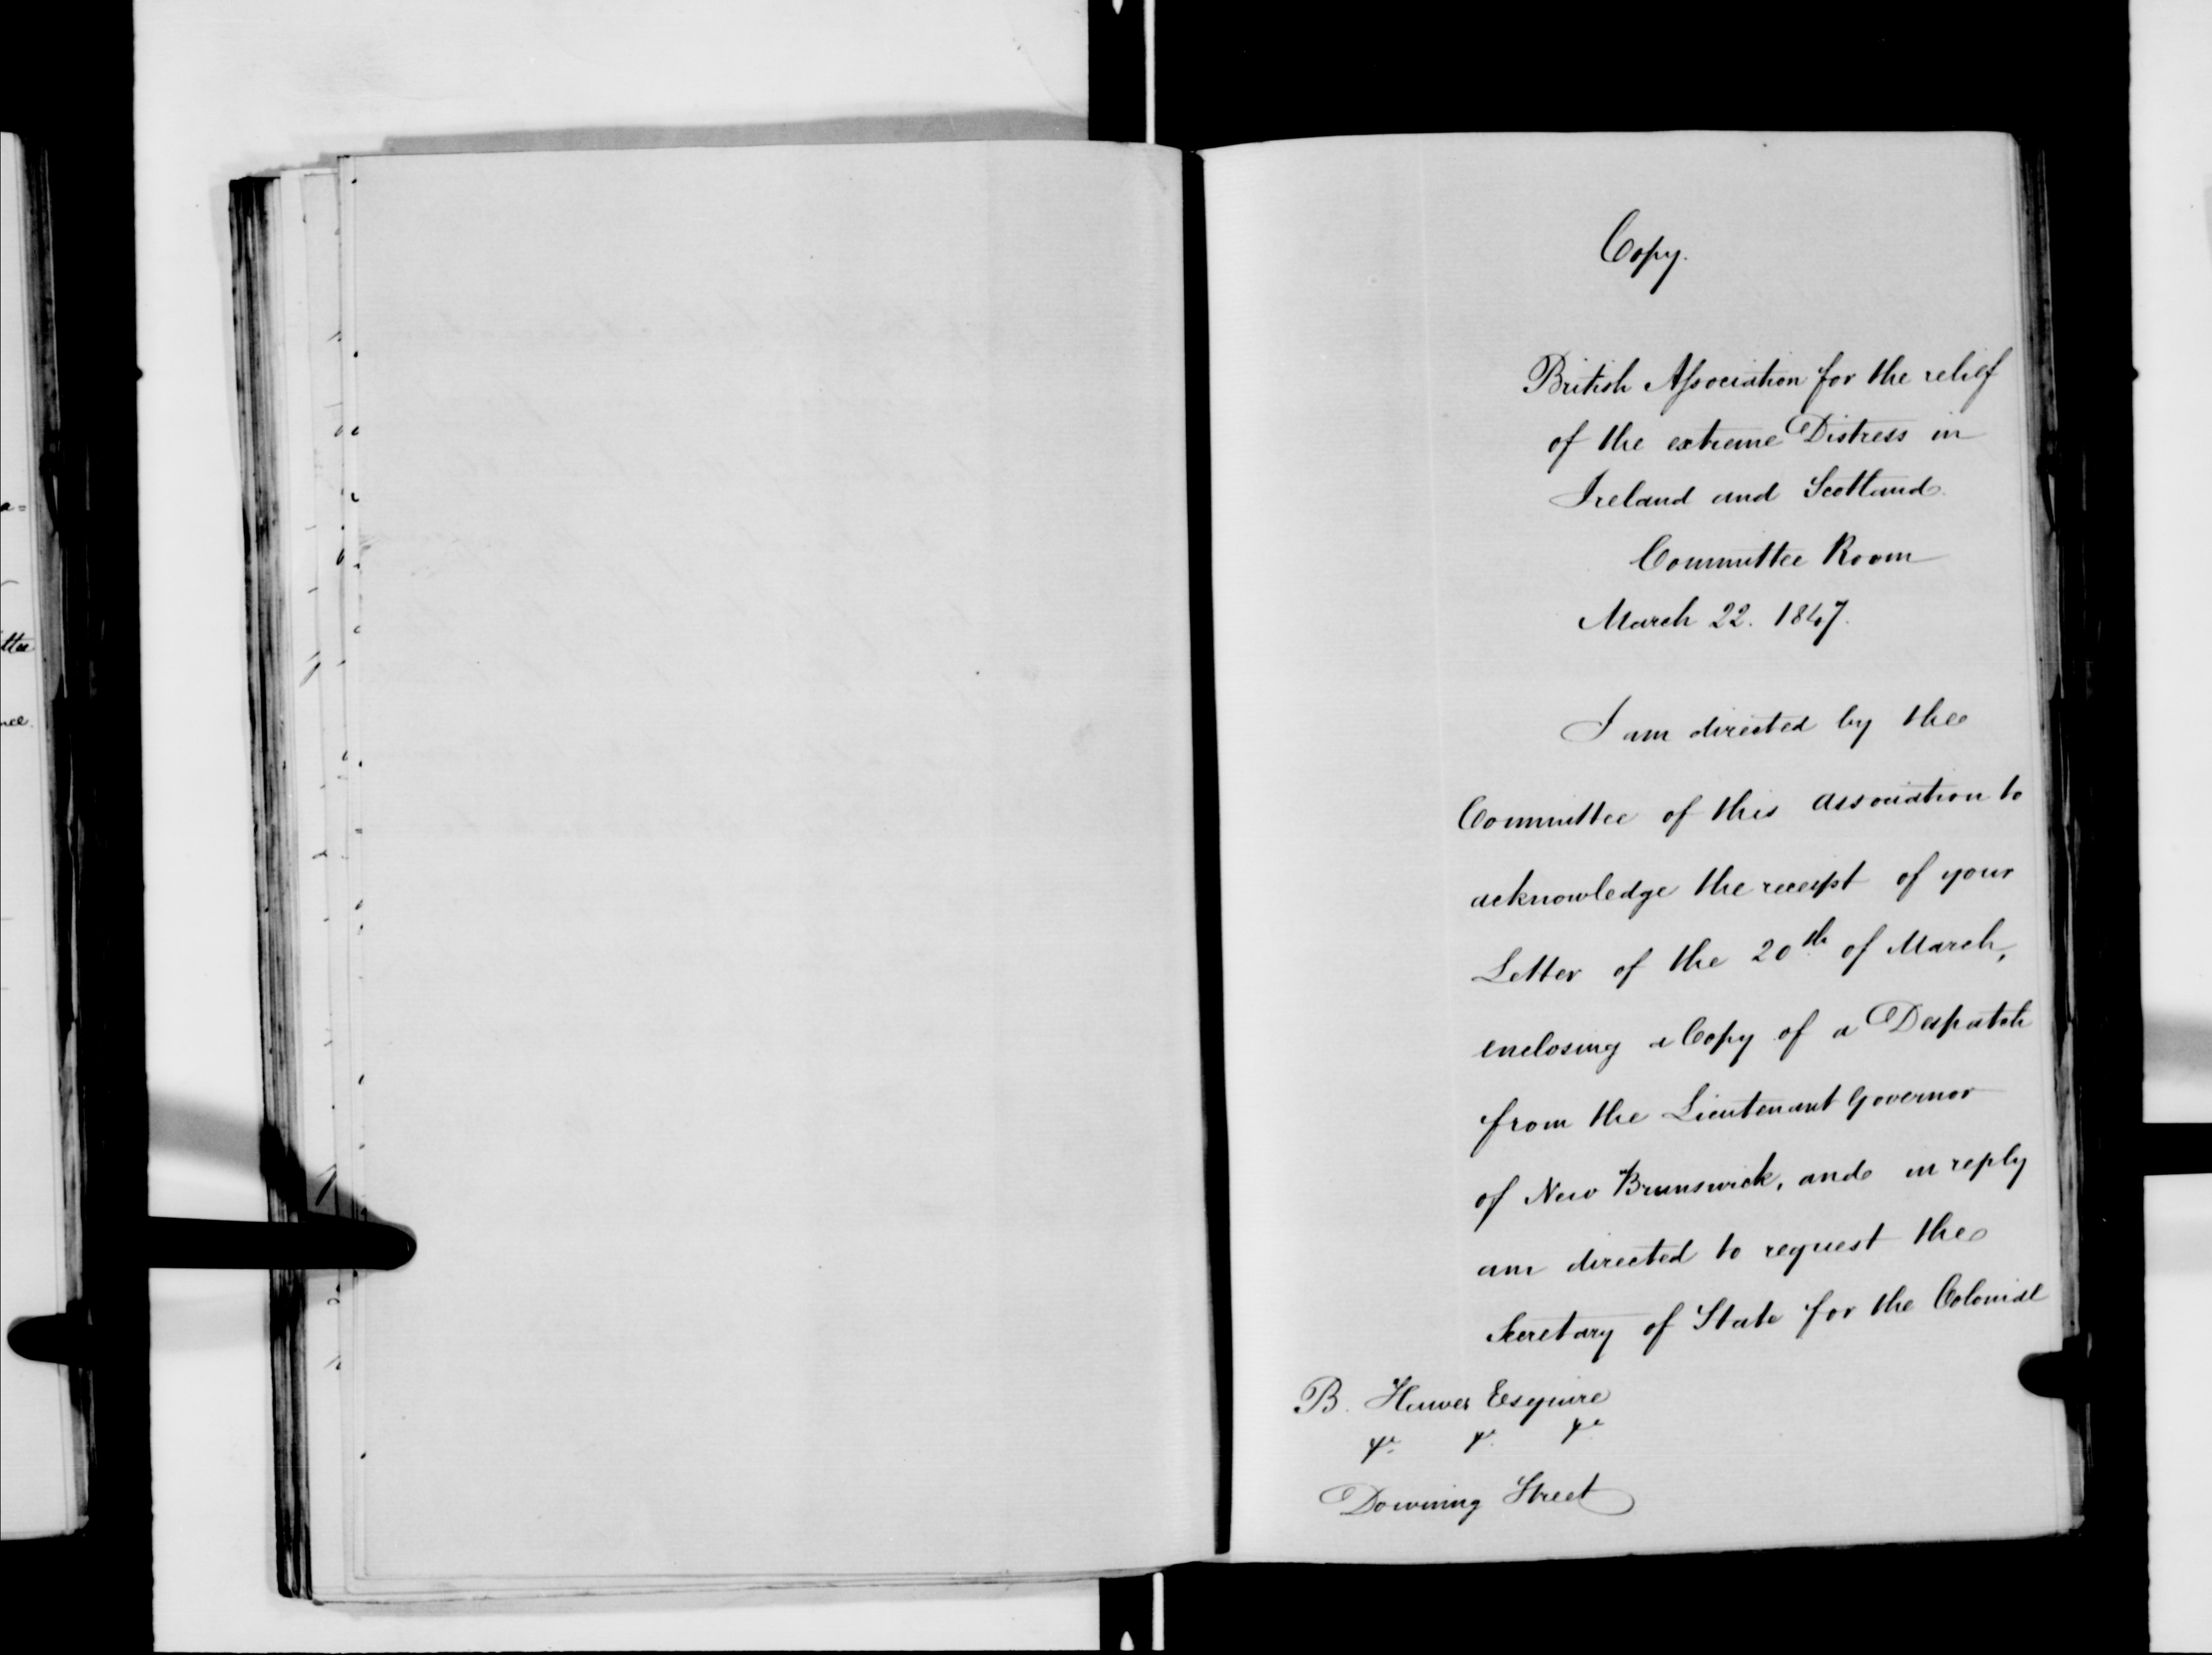 Copy.
British Association for the relief
of the extreme Distress in
Ireland and Scotland.
Committee Room
March 22. 1847.
I am directed by the
Committee of this association to
acknowledge the receipt of your
Letter of the 20th of March,
enclosing a Copy of a Despatch
from the Lieutenant Governor
of New Brunswick, and in reply
am directed to request the
Secretary of State for the Colonial
B. Hawes Esquire
&c. &c. &c.
Downing Street